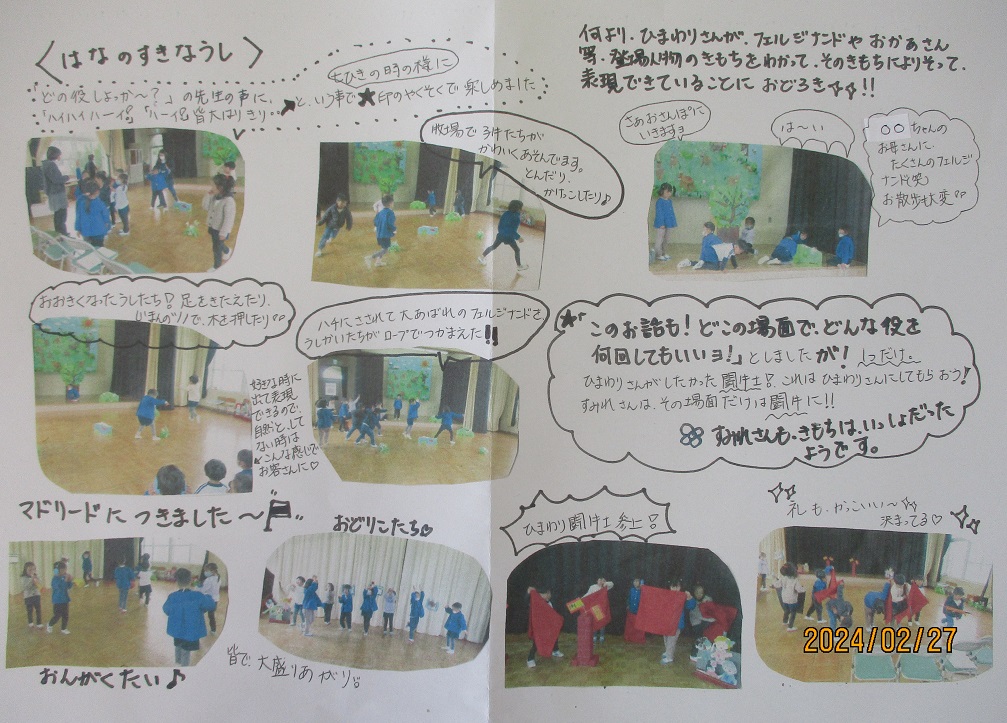 〈はなのすきなうし〉
どの役しよっか〜？」の先生の声に、
「ハイハイハーイ!!」「ハーイ!!」皆大はりきり・・
もひきの時の様に
と、いう事で★印のやくそくで楽しめました
牧場で3件たちが
かわいくあそんでます。
とんだり、
かけっこしたり♪
おおきくなったうしたち! 足をきたえたり、
じまんのツノで、木を押したり♡♡
ハチにさされて大あばれのフェルジナンドを、
うしかいたちがロープでつかまえた!!
好きな時に
出て表現
できるので、
自然と、して
ない時は
こんな感じで
お客さんに♡
マドリードにつきました〜
おんがくたい♪
おどりこたち♡
皆で大盛りあがり!!
何より、ひまわりさんが、フェルジナンドやおかあさん
等、登場人物のきもちをわかって、そのきもちによりそって、
表現できていることにおどろき☆☆!!
さぁおさんぽに
いきますョ
は〜い
○○ちゃんの
お母さんに
たくさんのフェルジ
ナンド(笑)
お散歩大変♡♡
★「このお話も! どこの場面で、どんな役を
何回してもいいヨ!」としましたが! 1つだけ〜
ひまわりさんがしたかった闘牛士!! これはひまわりさんにしてもらおう!
すみれさんは、その場面だけは闘牛に!!
すみれさんも、きもちは、いっしょだった
ようです。
ひまわり闘牛士参上!!
礼も、かっこいい〜☆☆
決まってる♡
2024/02/27